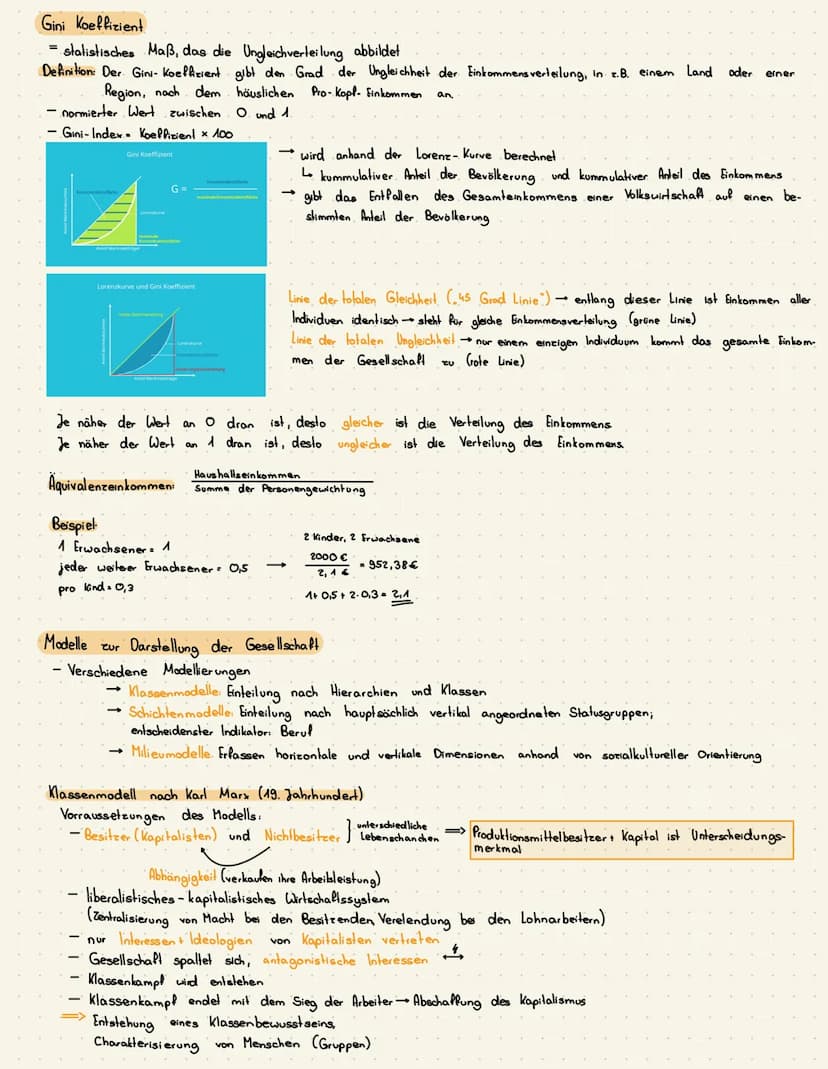 Gini Koeffizient
= statistisches Maß, das die Ungleichverteilung abbildet
Definition: Der Gini-Koeffizient gibt den Grad der Ungleichheit der Einkommensverteilung, in z.B. einem Land oder einer
Region, nach dem häuslichen Pro-Kopf-Einkommen an.
- normierter Wert zwischen 0 und 1
- Gini-Index = Koeffizient × 100
Gini Koeffizient
G =
Lorenzkurve
→ wird anhand der Lorenz-Kurve berechnet
↳ kummulativer Anteil der Bevölkerung und kummulativer Anteil des Einkommens
→ gibt das Entfallen des Gesamteinkommens einer Volkswirtschaft auf einen be-
stimmten Anteil der Bevölkerung
Lorenzkurve und Gini Koeffizient
Lorenzkurve
Linie der totalen Gleichheit („45 Grad Linie") → entlang dieser Linie ist Einkommen aller
Individuen identisch → steht für gleiche Einkommensverteilung (grüne Linie)
Linie der totalen Ungleichheit → nur einem einzigen Individuum kommt das gesamte Einkom-
men der Gesellschaft zu (rote Linie)
Je näher der Wert an 0 dran ist, desto gleicher ist die Verteilung des Einkommens
Je näher der Wert an 1 dran ist, desto ungleicher ist die Verteilung des Einkommens.
Äquivalenzeinkommen:
Haushaltseinkommen
Summe der Personengewichtung
Beispiel:
1 Erwachsener = 1
jeder weiterer Erwachsener = 0,5 →
pro Kind = 0,3
2 Kinder, 2 Erwachsene
2000 €
2,1 €
= 952,38€
1+ 0,5 + 2·0,3 = 2,1
Modelle zur Darstellung der Gesellschaft
- Verschiedene Modellierungen
→ Klassenmodelle: Einteilung nach Hierarchien und Klassen
→ Schichtenmodelle: Einteilung nach hauptsächlich vertikal angeordneten Statusgruppen;
entscheidenster Indikator: Beruf
→ Milieumodelle: Erfassen horizontale und vertikale Dimensionen anhand von sozialkultureller Orientierung
Klassenmodell nach Karl Marx (19. Jahrhundert)
Vorraussetzungen des Modells:
- Besitzer (Kapitalisten) und Nichtbesitzer
unterschiedliche
Lebenschanchen
⇒ Produktionsmittelbesitzer + Kapital ist Unterscheidungs-
merkmal
Abhängigkeit (verkaufen ihre Arbeitsleistung)
- liberalistisches-kapitalistisches Wirtschaftssystem
(Zentralisierung von Macht bei den Besitzenden, Verelendung bei den Lohnarbeitern)
- nur Interessen + Ideologien von Kapitalisten vertreten
- Gesellschaft spaltet sich, antagonistische Interessen
- Klassenkampf wird entstehen
- Klassenkampf endet mit dem Sieg der Arbeiter → Abschaffung des Kapitalismus
⇒ Entstehung eines Klassenbewusstseins,
Charakterisierung von Menschen (Gruppen)